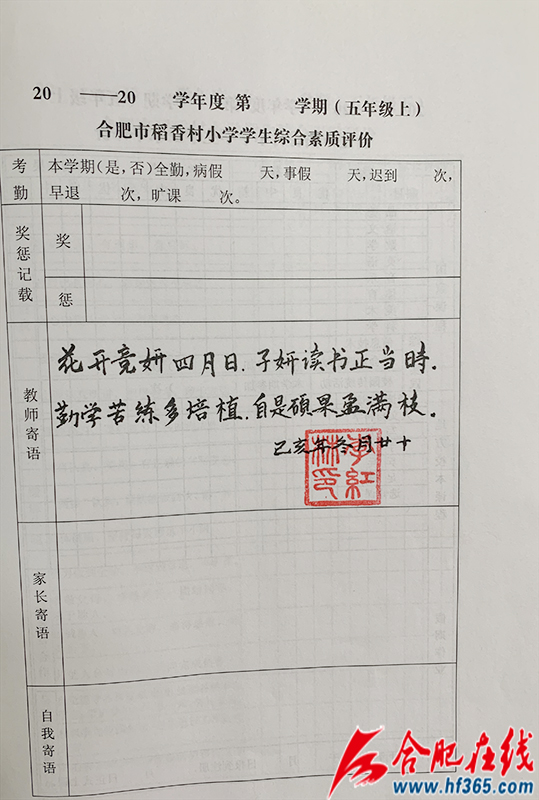 20 ——20 学年度 第 学期(五年级上)
合肥市稻香村小学学生综合素质评价
考勤
本学期(是,否)全勤,病假 天,事假 天,迟到 次,
早退 次, 旷课 次。
奖惩记载
奖
惩
教师寄语
花开竞妍四月日.子妍读书正当时.
勤学苦练多培植.自是硕果盈满枝.
己亥年冬月廿十
李红林印
家长寄语
自我寄语
合肥在线
www.hf365.com